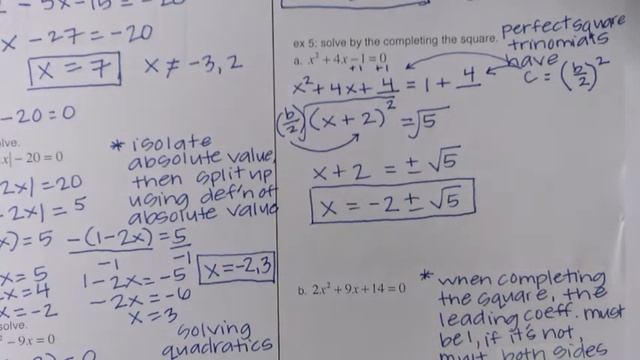 - 5x - 15 = - 20
x - 27 = -20
x = 7 x ≠ -3, 2
- 20 = 0
olve.
x| - 20 = 0
2x| = 20
- 2x| = 5
x) = 5 -(1-2x) = 5
-1 -1
x = 5 1 - 2x = -5
x = 4 -2x = -6
x = -2 x = 3
x = -2, 3
* isolate
absolute value,
then split up
using def'n of
absolute value
solve.
- 9x = 0
solving
quadratics
ex 5: solve by the completing the square.
a. x² + 4x - 1 = 0
+1 +1
x² + 4x + 4 = 1 + 4
(b/2) √(x + 2)² = √5
x + 2 = ± √5
x = -2 ± √5
perfect square
trinomials
have
c = (b/2)²
b. 2x² + 9x + 14 = 0
* when completing
the square, the
leading coeff. must
be 1, if it's not,
both sides